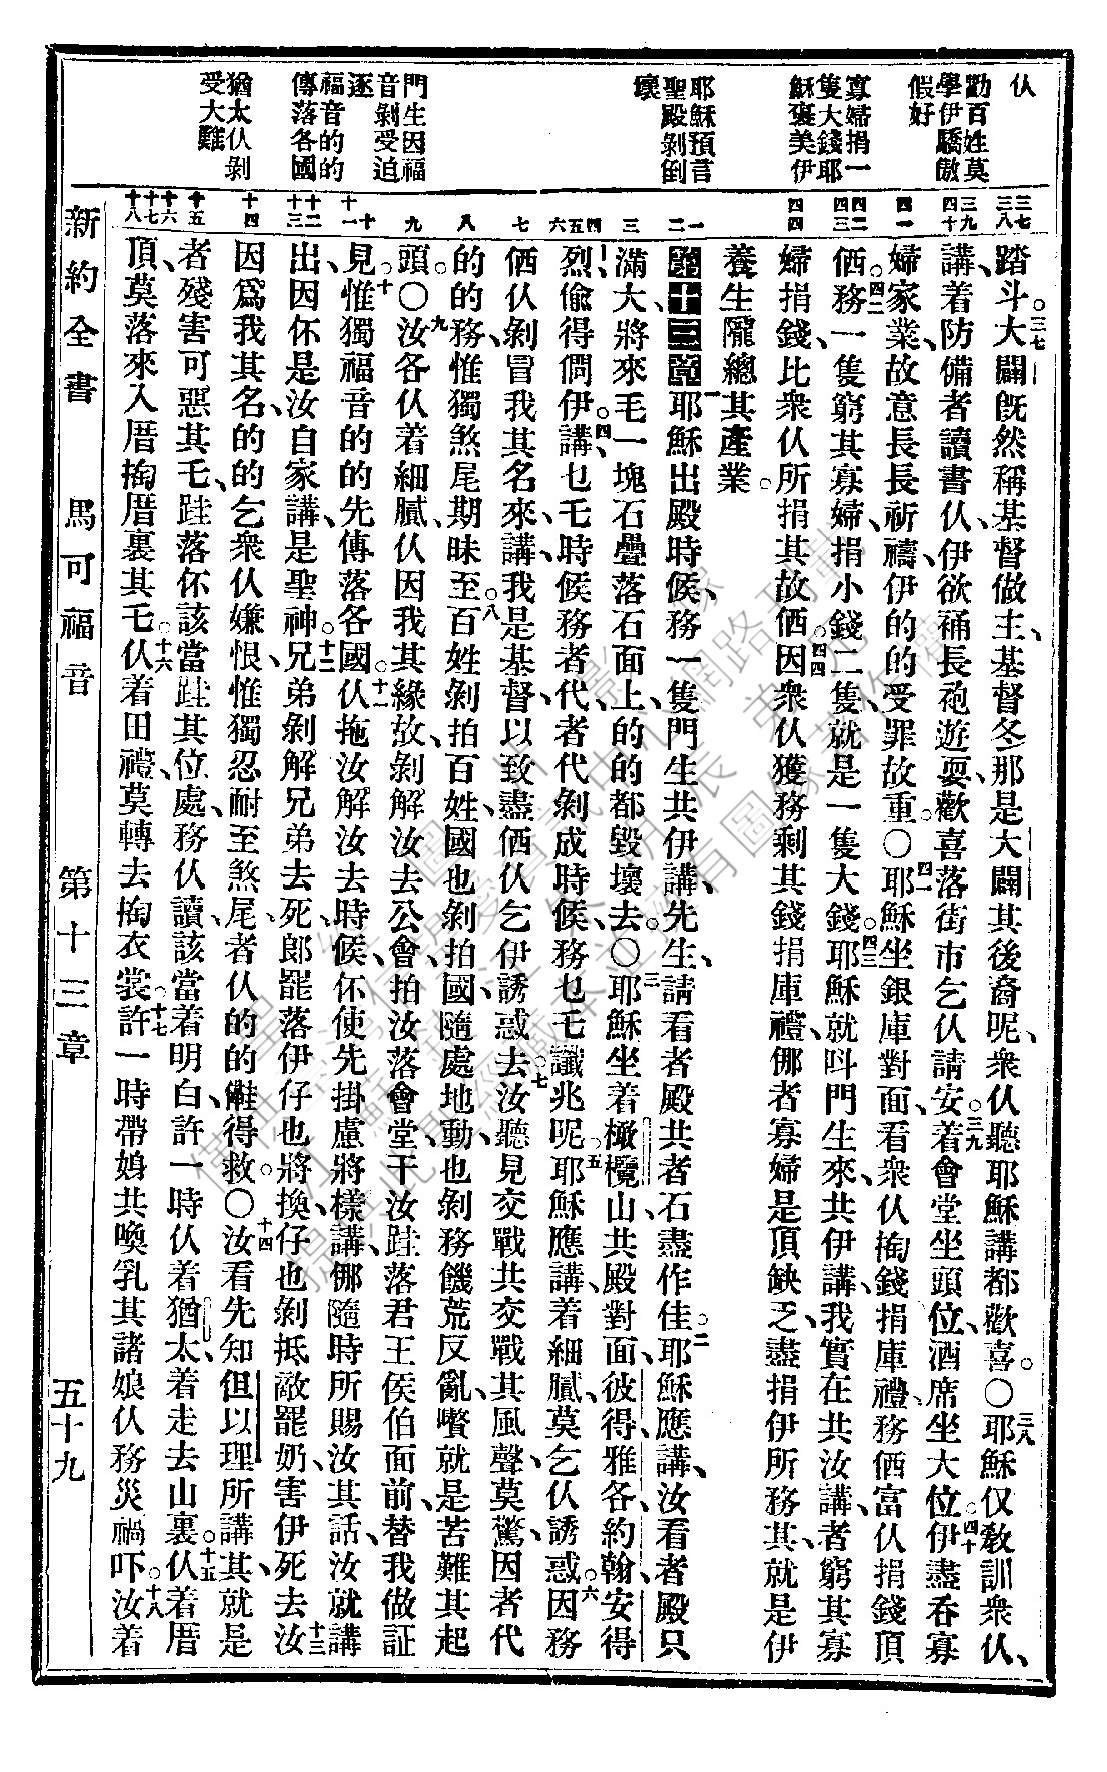 仈
勸百姓莫
學伊驕傲
假好
寡婦捐一
隻大錢耶
穌褒美伊
耶穌預言
聖殿剝倒
壞
門生因福
音剝受迫
逐
福音的的
傳落各國
猶太仈剝
受大難
踏斗。三七大闢旣然稱基督做主、基督冬那是大闢其後裔呢、衆仈聽耶穌講都歡喜。〇三八耶穌仅教訓衆仈、
講、着防備者讀書仈、伊欲補長袍遊耍、歡喜落街市乞仈請安。三九着會堂坐頭位、酒席坐大位。四十伊盡吞寡
婦家業、故意長長祈禱、伊的的受罪故重。〇四一耶穌坐銀庫對面、看衆仈掏錢捐庫禮、務価富仈捐錢頂
価。四二務一隻窮其寡婦、捐小錢二隻、就是一隻大錢。四三耶穌就叫門生來、共伊講、我實在共汝講、者窮其寡
婦捐錢、比衆仈所捐其故価。四四因衆仈獲務剩其錢捐庫禮、㑚者寡婦是頂缺乏、盡捐伊所務其、就是伊
養生隴總其產業。
第十三章一耶穌出殿時候、務一隻門生共伊講、先生、請看者殿共者石盡作佳。二耶穌應講、汝看者殿只
滿大、將來毛一塊石疊落石面上、的的都毀壞去。〇三耶穌坐着橄欖山、共殿對面、彼得、雅各、約翰、安得
烈、偷得問伊講。四乜乇時候務者代、者代剝成時候、務乜乇讖兆呢。五耶穌應講、着細膩、莫乞仈誘惑。六因務
価仈、剝冒我其名來、講、我是基督、以致盡価仈乞伊誘惑去。七汝聽見交戰共交戰其風聲、莫驚、因者代
的的務、惟獨煞尾期昧至。八百姓剝拍百姓、國也剝拍國、隨處地動、也剝務饑荒反亂、嚽就是苦難其起
頭。〇九汝各仈着細膩、仈因我其緣故、剝解汝去公會、拍汝落會堂、干汝跬落君王侯伯面前、替我做証
見。十惟獨福音的的先傳落各國。十一仈拖汝解汝去時候、伓使先掛慮將樣講、㑚隨時所賜汝其話、汝就講
出、因伓是汝自家講、是聖神。十二兄弟剝解兄弟去死、郎罷落伊仔也將換、仔也剝抵敵罷奶、害伊死去。十三汝
因爲我其名、的的乞衆仈嫌恨、惟獨忍耐至煞尾、者仈的的㑑得救。〇十四汝看先知但以理所講其、就是
者殘害可惡其乇、跬落伓該當跬其位處、務仈讀該當着明白、許一時仈着猶太、着走去山裏。十五仈着厝
頂、莫落來入厝掏厝裏其乇。十六仈着田禮、莫轉去掏衣裳。十七許一時帶娠共喚乳其諸娘仈務災禍吓。十八汝着
三七
三八
三九
四十
四一
四二
四三
四四
一
二
三
四
五
六
七
八
九
十
十一
十二
十三
十四
十五
十六
十七
十八
新約全書　馬可福音　第十三章　五十九